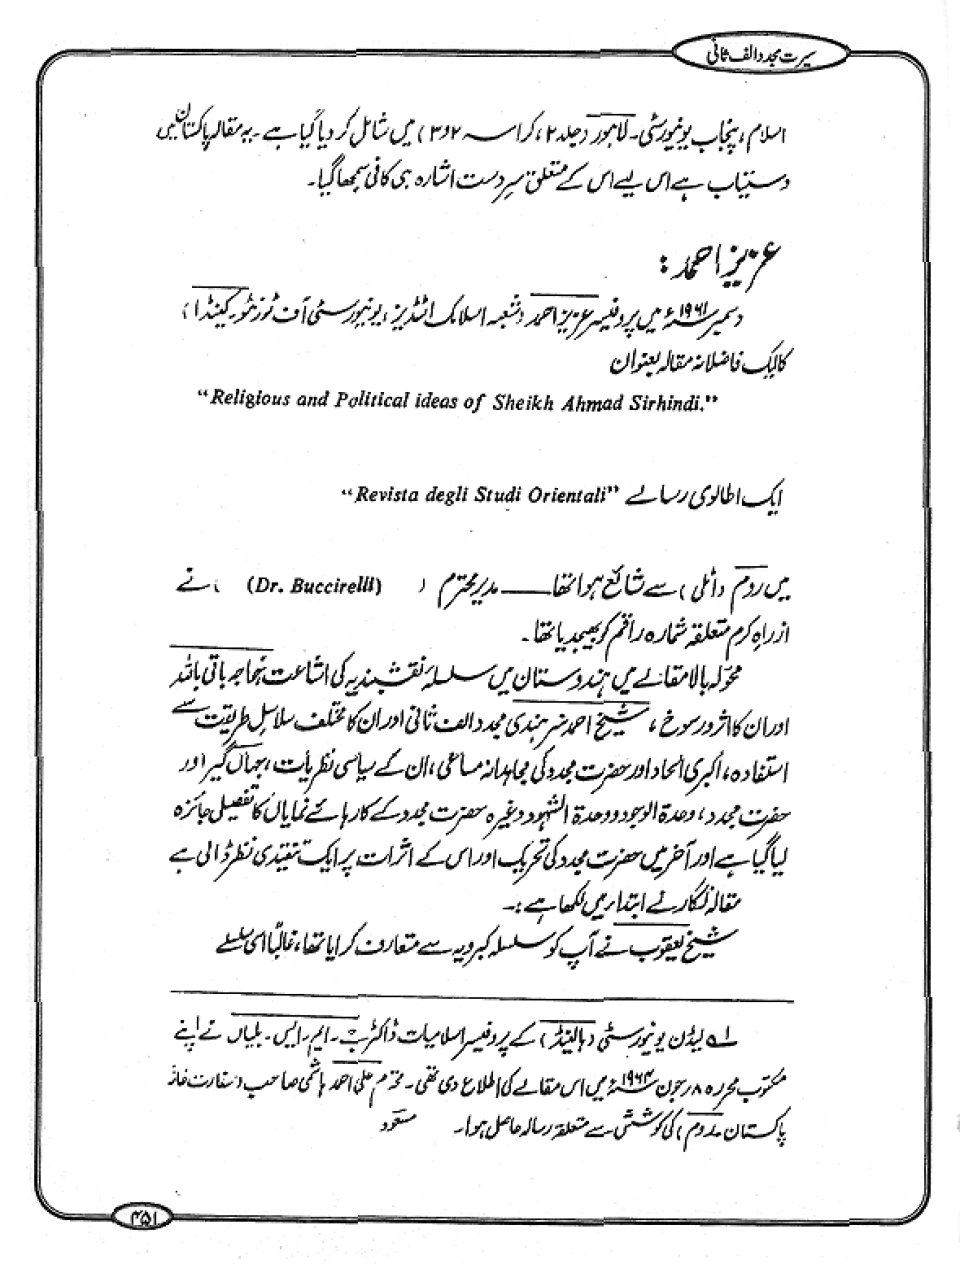 سیرت مجدد الف ثانی
اسلام، پنجاب یونیورسٹی۔ لاہور (جلد ۲، کراسہ ۲ و ۳) میں شامل کر دیا گیا ہے۔ یہ مقالہ پاکستان میں
دستیاب ہے اس لیے اس کے متعلق سرِدست اشارہ ہی کافی سمجھا گیا۔
عزیز احمد:
دسمبر ۱۹۶۱ء میں پروفیسر عزیز احمد (شعبہ اسلامک اسٹڈیز، یونیورسٹی آف ٹورنٹو۔ کینڈا)
کا ایک فاضلانہ مقالہ بعنوان
“Religious and Political ideas of Sheikh Ahmad Sirhindi.”
ایک اطالوی رسالے “Revista degli Studi Orientali”
میں روم (اٹلی) سے شائع ہوا تھا—— مدیر محترم (Dr. Buccirelli) نے
ازراہِ کرم متعلقہ شمارہ راقم کو بھیجدیا تھا۔
محولہ بالا مقالے میں ہندوستان میں سلسلۂ نقشبندیہ کی اشاعت، خواجہ باقی باللہ
اور ان کا اثر و رسوخ، شیخ احمد سرہندی مجدد الف ثانی اور ان کا مختلف سلاسلِ طریقت سے
استفادہ، اکبری الحاد اور حضرت مجدد کی مجاہدانہ مساعی، ان کے سیاسی نظریات، جہاں گیر اور
حضرت مجدد، وحدۃ الوجود و وحدۃ الشہود وغیرہ حضرت مجدد کے کارہائے نمایاں کا تفصیلی جائزہ
لیا گیا ہے اور آخر میں حضرت مجدد کی تحریک اور اس کے اثرات پر ایک تنقیدی نظر ڈالی ہے
مقالہ نگار نے ابتدار میں لکھا ہے:-
شیخ یعقوب نے آپ کو سلسلہ کبرویہ سے متعارف کرایا تھا، غالباً اسی سلسلے
۱؎ لیڈن یونیورسٹی (ہالینڈ) کے پروفیسر اسلامیات ڈاکٹر ب۔ ایم۔ ایس۔ بلیاں نے اپنے
مکتوب محررہ ۸ جون ۱۹۶۴ء میں اس مقالے کی اطلاع دی تھی۔ محترم علی احمد ہاشمی صاحب (سفارت خانہ
پاکستان۔ روم) کی کوشش سے متعلقہ رسالہ حاصل ہوا۔ مسعود
۴۵۱